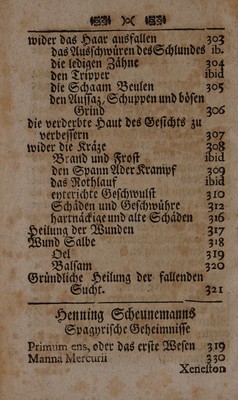 wider das Haar ausfallen 303
das Ausschwüren des Schlundes ib.
die ledigen Zähne 304
den Tripper ibid
die Schaam Beulen 305
den Aussaz, Schuppen und bösen
Grind 306
die verderbte Haut des Gesichts zu
verbessern 307
wider die Kräze 308
Brand und Frost ibid
den Spann Ader Krampf 309
das Rothlauf ibid
enterichte Geschwulst 310
Schäden und Geschwühre 312
hartnäckige und alte Schäden 316
Heilung der Wunden 317
Wund Salbe 318
Oel 319
Balsam 320
Gründliche Heilung der fallenden
Sucht. 321
Henning Scheunemanns
Spagyrische Geheimnisse
Primum ens, oder das erste Wesen 319
Manna Mercurii 330
Xenelton